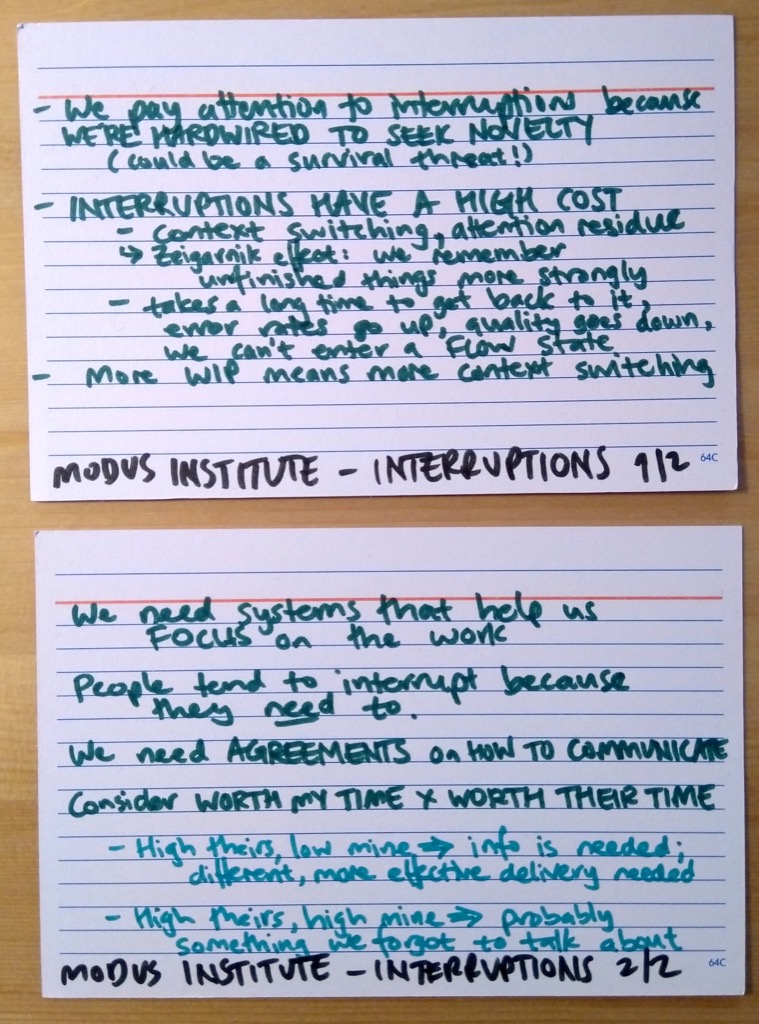 - We pay attention to interruptions because
WE'RE HARDWIRED TO SEEK NOVELTY
(could be a survival threat!)
- INTERRUPTIONS HAVE A HIGH COST
- context switching, attention residue
↳ Zeigarnik effect: we remember
unfinished things more strongly
- takes a long time to get back to it,
error rates go up, quality goes down,
we can't enter a FLOW STATE
- More WIP means more context switching
MODUS INSTITUTE - INTERRUPTIONS 1/2
64C
We need systems that help us
FOCUS on the work
People tend to interrupt because
they need to.
We need AGREEMENTS on HOW TO COMMUNICATE
Consider WORTH MY TIME x WORTH THEIR TIME
- High theirs, low mine ⇒ info is needed;
different, more effective delivery needed
- High theirs, high mine ⇒ probably
something we forgot to talk about
MODUS INSTITUTE - INTERRUPTIONS 2/2
64C